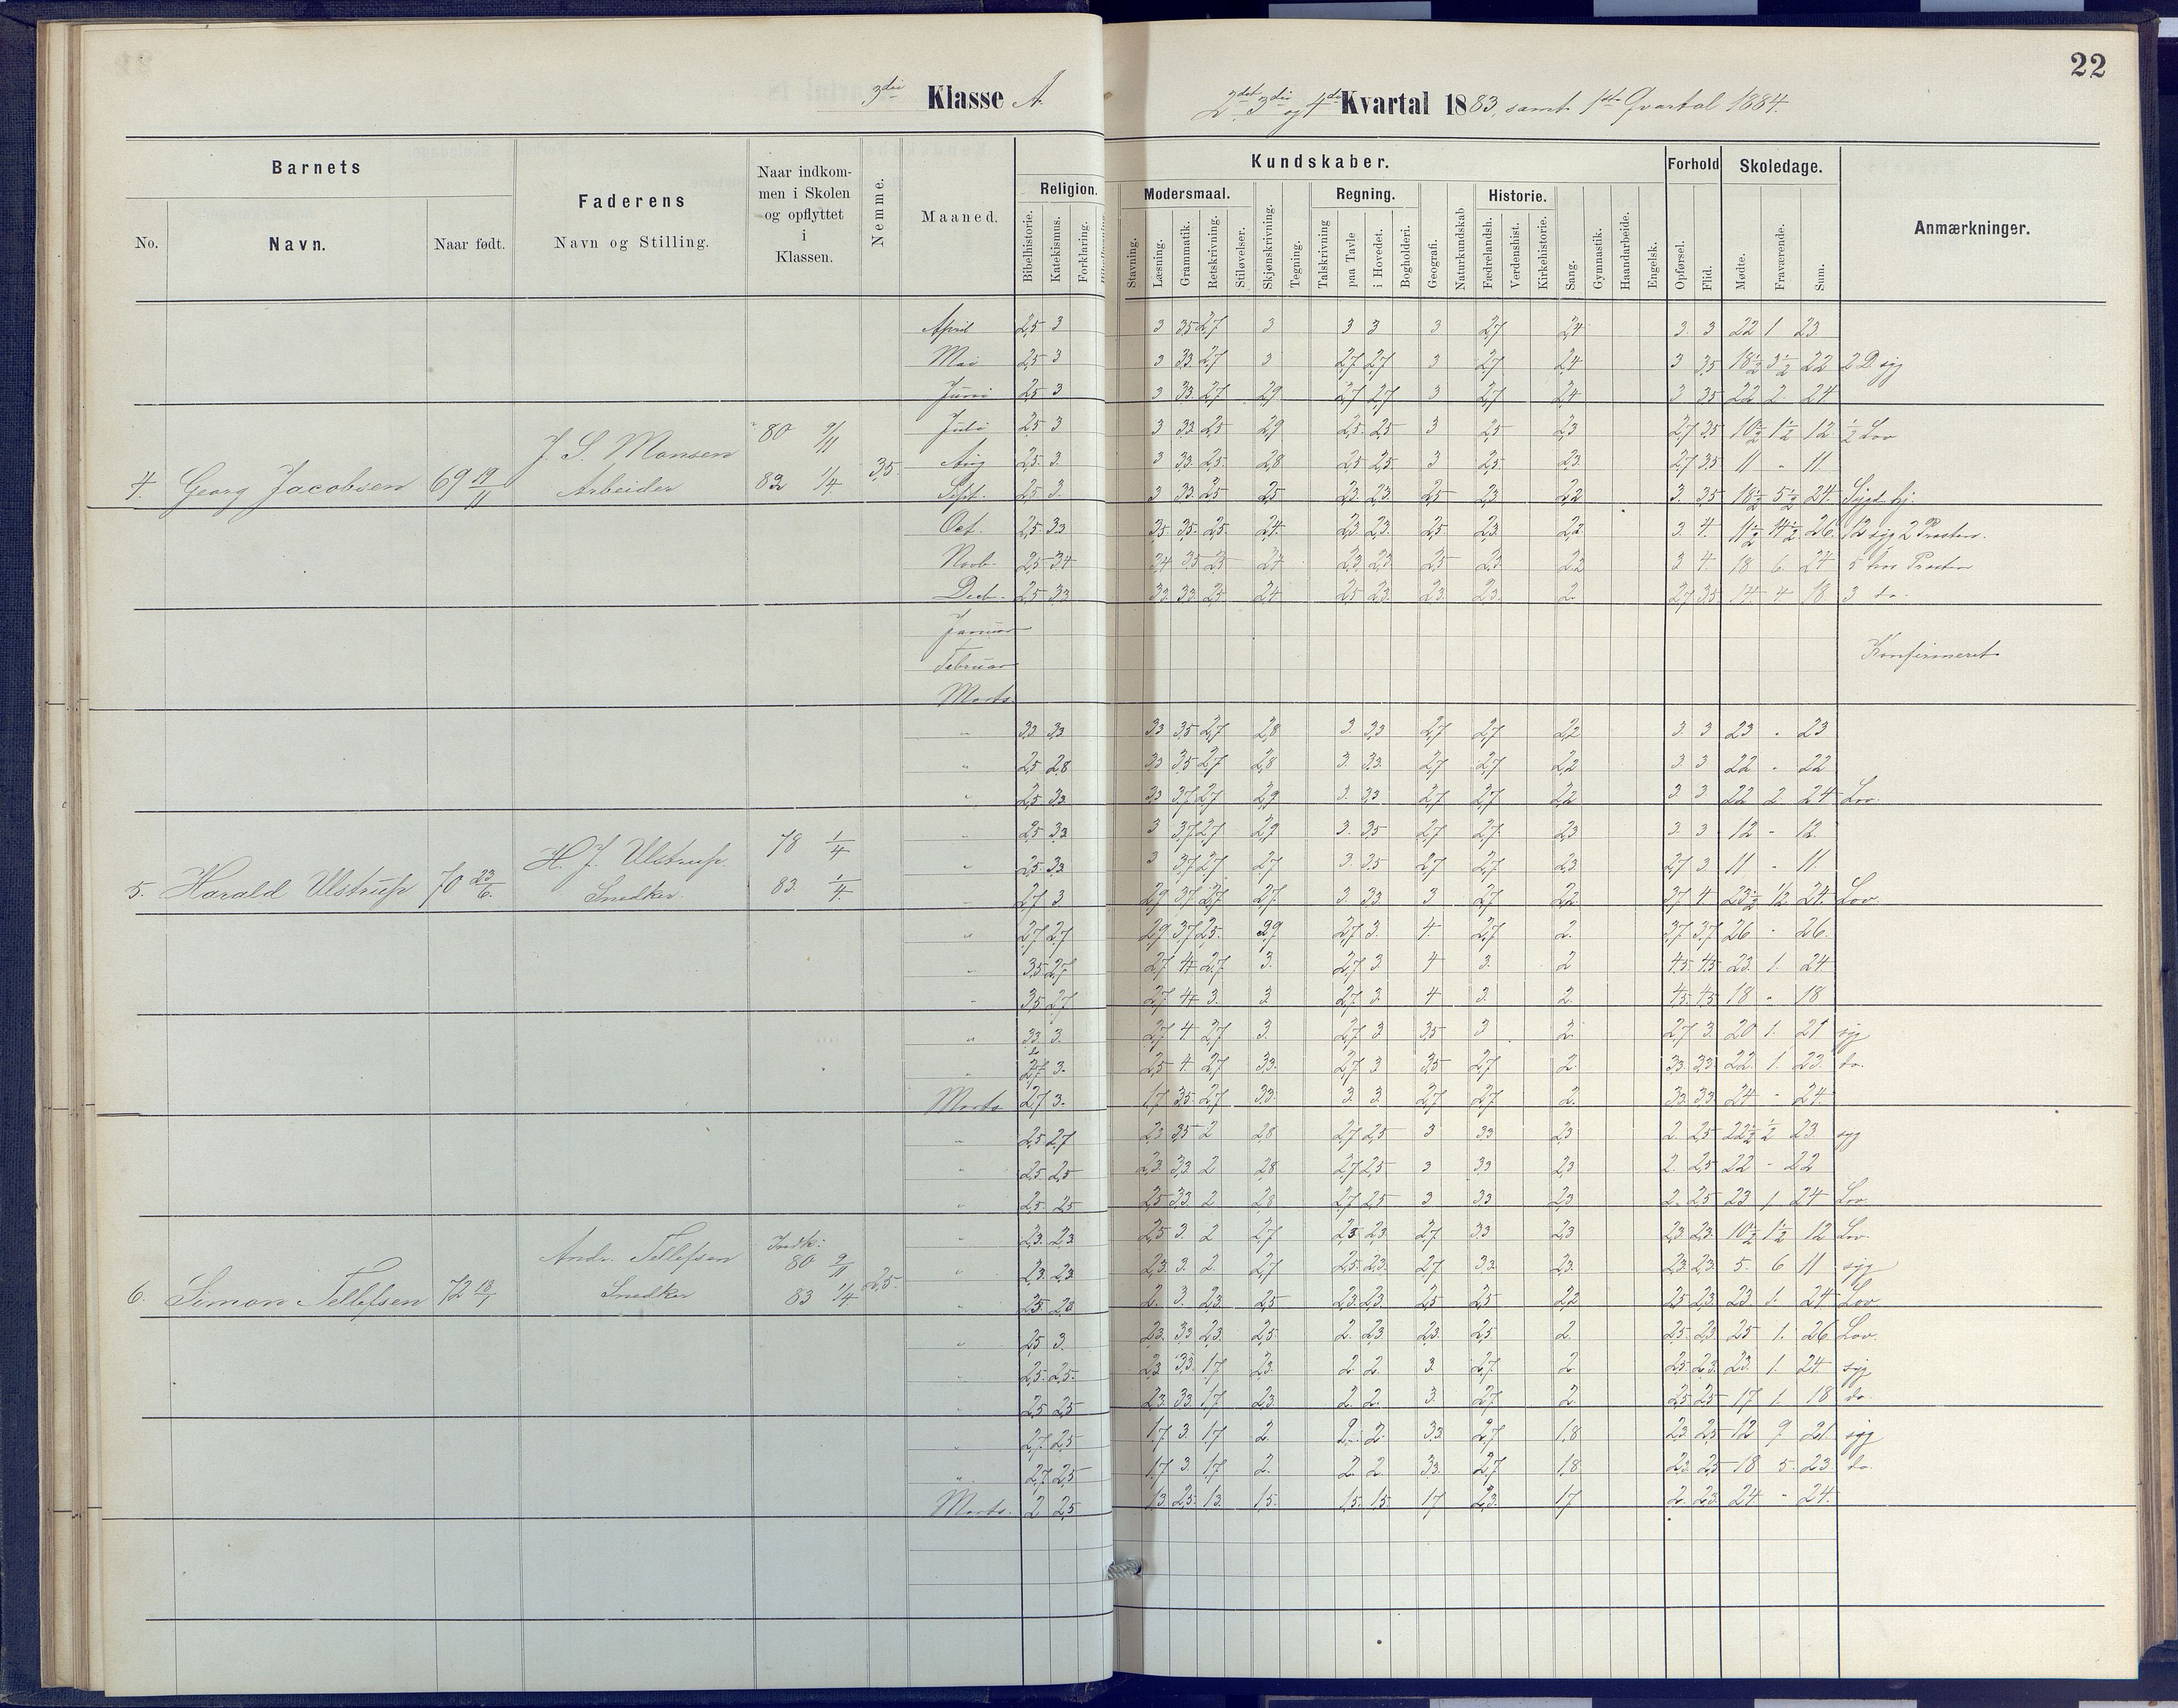 22
3die Klasse A.
2det 3die og 4de Kvartal 1883, samt 1ste Qvartal 1884.
Barnets
Faderens
Naar indkom-
men i Skolen
og opflyttet
i
Klassen.
Nemme.
Maaned.
Kundskaber.
Forhold
Skoledage.
Anmærkninger.
No.
Navn.
Naar født.
Navn og Stilling.
Religion.
Modersmaal.
Regning.
Historie.
Bibelhistorie.
Katekismus.
Forklaring.
Stavning.
Læsning.
Grammatik.
Retskrivning.
Stiløvelser.
Skjønskrivning.
Tegning.
Talskrivning
paa Tavle
i Hovedet.
Bogholderi.
Geografi.
Naturkundskab
Fædrelandsh.
Verdenshist.
Kirkehistorie.
Sang.
Gymnastik.
Haandarbeide.
Engelsk.
Opførsel.
Flid.
Mødte.
Fraværende.
Sum.
April 2,5 3 3 3,5 2,7 3 3 3 3 2,7 2,4 3. 3 22 1 23
Mai 2,5 3 3 3,3 2,7 3 2,7 2,7 3 2,7 2,4 3 3,5 18½ 3½ 22 2 D. syg
Juni 2,5 3 3 3,3 2,7 2,9 2,7 2,7 3 2,7 2,4 3 3,5 22 2 24
Juli 2,5 3 3 3,3 2,5 2,9 2,5 2,5 3 2,5 2,3 2,7 3,5 10½ 1½ 12 ½ Lov
Aug 2,5 3. 3 3,3 2,5 2,8 2,5 2,5 3 2,5 2,3 2,7 3,5 11 - 11
4. Georg Jacobsen 69 19/11
J. S. Monsen
Arbeider
80 9/11
82 1/4
3,5
Sept. 2,5 3. 3 3,3 2,5 2,5 2,3 2,3 2,5 2,3 2,2 3. 3,5 18½ 5½ 24.
Oct. 2,5 3,3 3,5 3,5 2,5 2,4 2,3 2,3 2,5 2,3 2,2 3 4. 11½ 14½ 26 12 syg 2 Præsten.
Novb. 2,5 3,4 3,4 3,5 2,5 2,4 2,3 2,3 2,5 2,3 2,2 3 4 18 6 24 5 hos Præsten
Decb. 2,5 3,3 3,3 3,3 2,5 2,4 2,5 2,3 2,3 2,3 2. 2,7 3,5 14 4 18 3 do.
Januar
Februar
Konfirmeret
Marts
" 3,3 3,3 3,3 3,5 2,7 2,8 3. 3,3 2,7 2,7 2,2 3. 3 23 - 23
" 2,5 2,8 3,3 3,5 2,7 2,8 3. 3,3 2,7 2,7 2,2 3. 3 22 - 22
" 2,5 3,3 3,3 3,7 2,7 2,9 3. 3,3 2,7 2,7 2,2 3. 3. 22 2. 24 Lov.
" 2,5 3,3 3 3,7 2,7 2,9 3. 3,5 2,7 2,7 2,3 3. 3 12 - 12
" 2,5 3,3 3 3,7 2,7 2,7 3. 3,5 2,7 2,7 2,3 2,7 3. 11 - 11
5. Harald Ulstrup 70 23/6.
H. J. Ulstrup.
Snedker.
78 1/4
83. 1/4.
" 2,7 3 2,9 3,7 2,7 2,7 3. 3,3 3 2,7 2,2 3,7 4 23½ ½ 24. Lov.
" 2,7 2,7 2,9 3,7 2,5 2,9 2,7 3. 4 2,7 2. 3,7 3,7 26 - 26.
" 3,5 2,7 2,7 4 2,7 3. 2,7 3 4 3. 2 4,5 4,5 23. 1. 24
" 3,5 2,7 2,7 4 3. 3 2,7 3. 4 3. 2. 4,5 4,5 18 - 18
" 3,3 3. 2,7 4. 2,7 3. 2,7 3 3,5 3 2. 2,7 3. 20 1. 21 syg
" 2,7 3. 2,5 4. 2,7 3,3. 2,7 3 3,5 2,7 2. 3,3 3,3 22. 1. 23. do.
Marts 2,7 3. 1,7 3,5 2,7 3,3. 3. 3. 2,7 2,7 2. 3,3 3,3 24 - 24.
" 2,5 2,7 2,3 3,5 2 2,8 2,7 2,5 3 3,3 2,3 2. 2,5 22½ ½ 23. syg
" 2,5 2,5 2,3 3,3 2 2,8 2,7 2,5 3 3,3 2,3 2. 2,5 22 - 22
" 2,5 2,5 2,5 3,3 2 2,8 2,7 2,5 3 3,3 2,3 2. 2,5 23 1. 24 Lov
" 2,3 2,3 2,5 3. 2 2,7 2,3 2,3 2,7 3,3 2,3 2,3 2,3 10½ 1½ 12 Lov.
" 2,3 2,3 2,3 3. 2. 2,7 2,5 2,3 2,7 3,3 2,3 2,3 2,3 5. 6 11 syg
6. Simon Tellefsen 72 13/1
Andr. Tellefsen
Snedker
Indk:
80 9/11
83 1/4
2,5.
" 2,5 2,3 2. 3. 2,3 2,5 2,3 2,3 2,5 2,5 2,2 2,5 2,3 23. 1. 24 Lov
" 2,5 3. 2,3. 3,3 2,3 2,5 2. 2,3 2,3 2,5 2. 2,5 2,3 25 1. 26 Lov.
" 2,5 2,5 2,3 3,3 1,7 2,3. 2. 2. 3. 2,7 2. 2,5 2,3 23. 1. 24. syg
" 2,5 2,5 2,3 3,3 1,7 2,3. 2. 2. 3. 2,7 2. 2,5 2,5 17 1. 18 do.
" 2,7 2,5 1,7 3. 1,7 2. 2. 2. 3,3 2,7 1,8 2,3 2,5 12 9 21. syg
" 2,7 2,5 1,7 3. 1,7 2. 2. 2. 3,3 2,7 1,8 2,3 2,5 18 5. 23. do.
Marts. 2 2,5 1,3 2,5 1,3 1,5. 1,5 1,5 1,7 2,3. 1,7 2. 2,3 24 - 24.